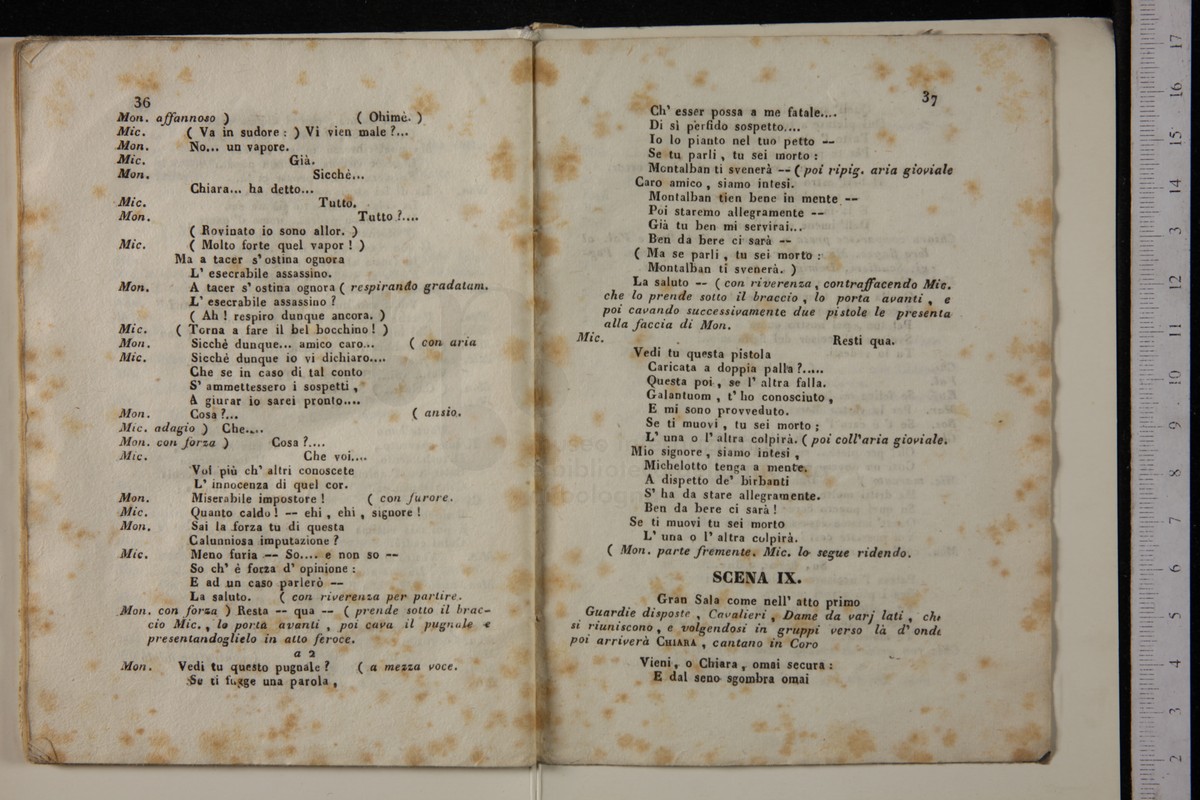 36
Mon. affannoso ) ( Ohimè. )
Mic. ( Va in sudore : ) Vi vien male ?...
Mon. No... un vapore.
Mic. Già.
Mon. Sicchè...
Chiara... ha detto...
Mic. Tutto.
Mon. Tutto ?....
( Rovinato io sono allor. )
Mic. ( Molto forte quel vapor ! )
Ma a tacer s' ostina ognora
L' esecrabile assassino.
Mon. A tacer s' ostina ognora ( respirando gradatam.
L' esecrabile assassino ?
( Ah ! respiro dunque ancora. )
Mic. ( Torna a fare il bel bocchino ! )
Mon. Sicchè dunque... amico caro... ( con aria
Mic. Sicchè dunque io vi dichiaro....
Che se in caso di tal conto
S' ammettessero i sospetti ,
A giurar io sarei pronto....
Mon. Cosa ?... ( ansio.
Mic. adagio ) Che....
Mon. con forza ) Cosa ?....
Mic. Che voi....
Voi più ch' altri conoscete
L' innocenza di quel cor.
Mon. Miserabile impostore ! ( con furore.
Mic. Quanto caldo ! — ehi , ehi , signore !
Mon. Sai la forza tu di questa
Calunniosa imputazione ?
Mic. Meno furia — So.... e non so —
So ch' é forza d' opinione :
E ad un caso parlerò —
La saluto. ( con riverenza per partire.
Mon. con forza ) Resta -- qua -- ( prende sotto il brac-
cio Mic. , lo porta avanti , poi cava il pugnale e
presentandoglielo in atto feroce.
a 2
Mon. Vedi tu questo pugnale ? ( a mezza voce.
Se ti fugge una parola ,
37
Ch' esser possa a me fatale....
Di sì perfido sospetto....
Io lo pianto nel tuo petto —
Se tu parli , tu sei morto :
Montalban ti svenerà -- ( poi ripig. aria gioviale
Caro amico , siamo intesi.
Montalban tien bene in mente —
Poi staremo allegramente --
Già tu ben mi servirai...
Ben da bere ci sarà --
( Ma se parli , tu sei morto :
Montalban ti svenerà. )
La saluto -- ( con riverenza , contraffacendo Mic.
che lo prende sotto il braccio , lo porta avanti , e
poi cavando successivamente due pistole le presenta
alla faccia di Mon.
Mic. Resti qua.
Vedi tu questa pistola
Caricata a doppia palla ?.....
Questa poi , se l' altra falla.
Galantuom , t' ho conosciuto ,
E mi sono provveduto.
Se ti muovi , tu sei morto ;
L' una o l' altra colpirà. ( poi coll'aria gioviale.
Mio signore , siamo intesi ,
Michelotto tenga a mente.
A dispetto de' birbanti
S' ha da stare allegramente.
Ben da bere ci sarà !
Se ti muovi tu sei morto
L' una o l' altra colpirà.
( Mon. parte fremente. Mic. lo segue ridendo.
SCENA IX.
Gran Sala come nell' atto primo
Guardie disposte , Cavalieri , Dame da varj lati , che
si riuniscono , e volgendosi in gruppi verso là d' onde
poi arriverà CHIARA , cantano in Coro
Vieni , o Chiara , omai secura :
E dal seno sgombra omai